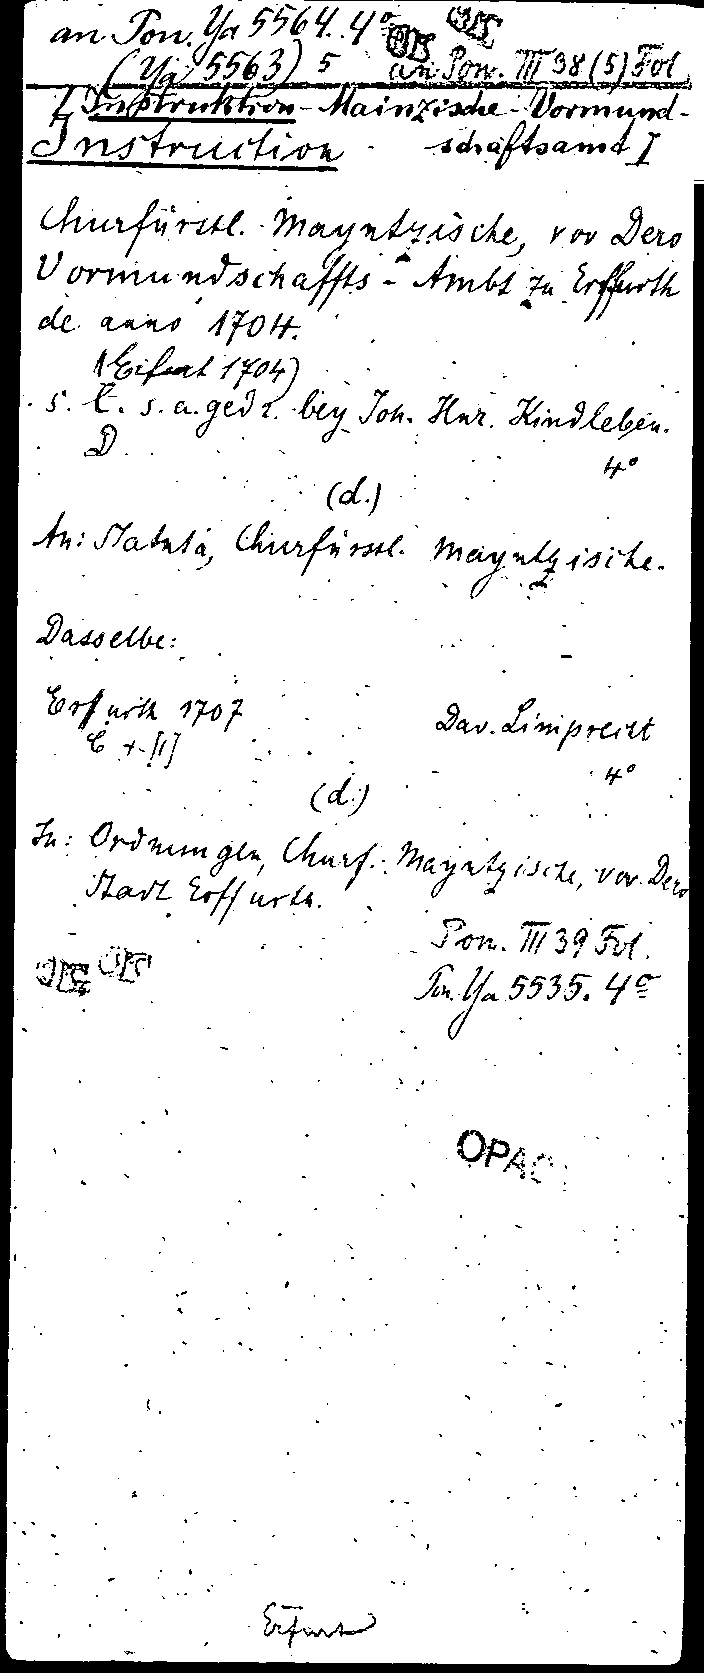 an Pon. Ya 5564. 4º
(Ya 5563) 5 an Pon. III 38 (5) Fol
Instruktion-Mainzische-Vormund-
schaftsamt I
Instruction
Churfürstl. Mayntzische, vor Dero
Vormundschaffts-Ambt zu Erffurth
de anno 1704.
(Erfurt 1704)
s. l. s. a. gedr. bey Joh. Hnr. Kindleben.
D 4º
(d.)
An: Statuta, Churfürstl. Mayntzische.
Dasselbe:
Erffurth 1707 Dav. Limprecht
E + [1] 4º
(d.)
In: Ordnungen, Churf. Mayntzische, vor Dero
Stadt Erffurth.
Pon. III 39 Fol.
Pon. Ya 5535. 4º
OPAC
Erfurt